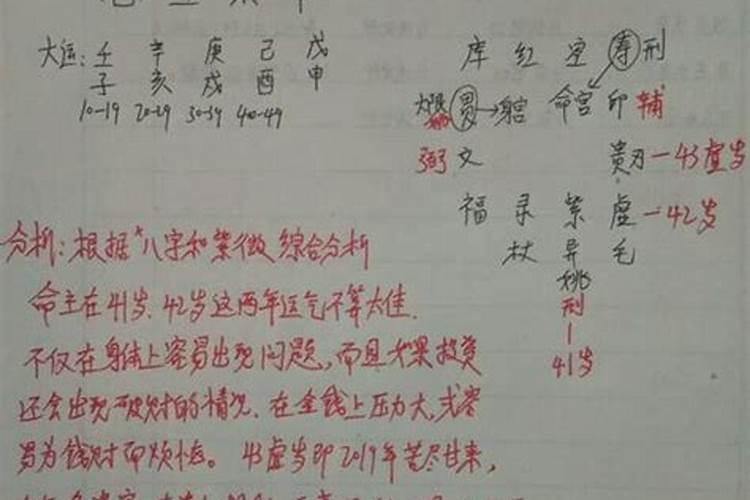 大运: 壬 辛 庚 己 戊
子 亥 戌 酉 申
10-19 20-29 30-39 40-49
库 红 空 寿 刑
大限 贯→ 命宫 印 辅
弼 文 贵 刃-43虚岁
福 录 紫 虚-42岁
杖 异 毛
姚
刑
41岁
分析: 根据"八字和紫微综合分析
命主在41岁、42岁这两年运气不算太佳.
不仅在身体上容易出现问题, 而且如果投资
还会出现破财的情况. 在金钱上压力大, 或容
易为钱财而烦恼。43虚岁即2019年苦尽甘来,